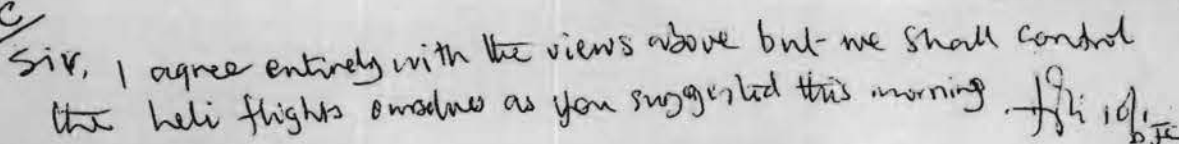 C/
Sir, I agree entirely with the views above but we shall control
the heli flights ourselves as you suggested this morning.